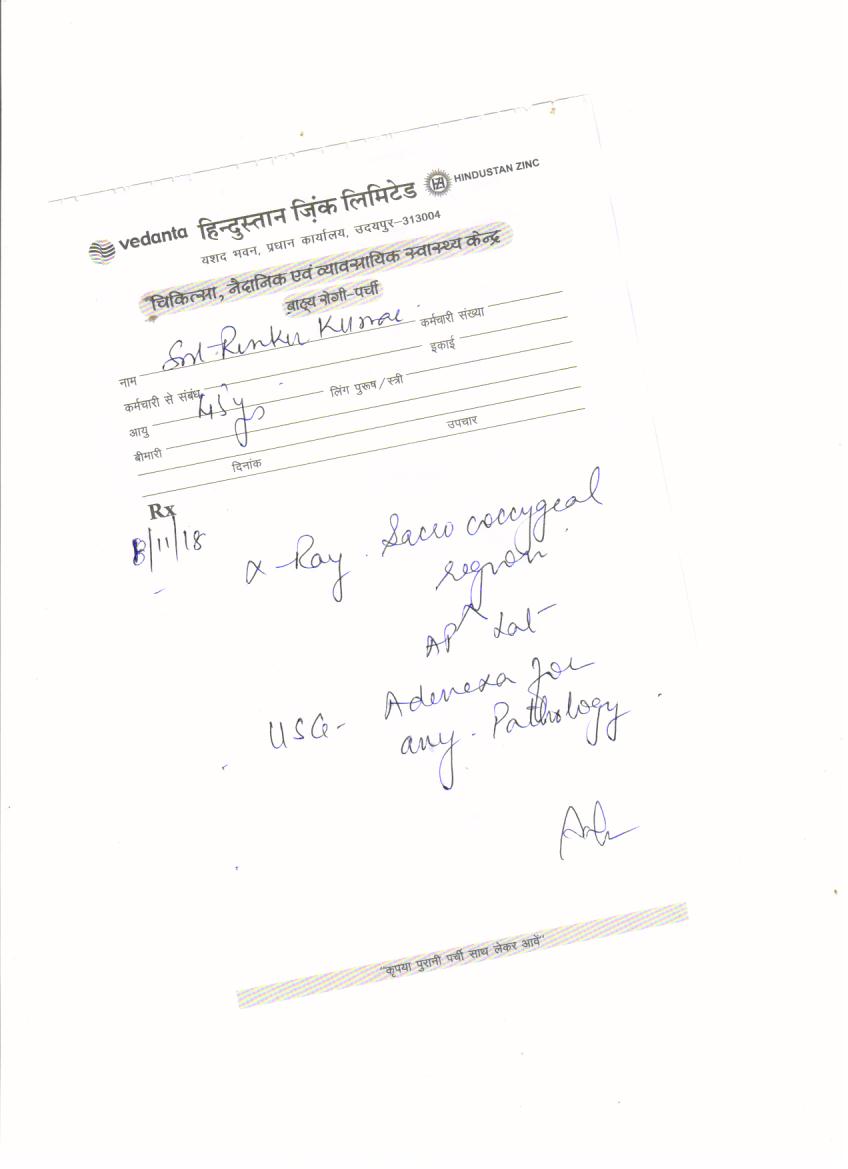 vedanta हिन्दुस्तान ज़िंक लिमिटेड HINDUSTAN ZINC
यशद भवन, प्रधान कार्यालय, उदयपुर–313004
चिकित्सा, नैदानिक एवं व्यावसायिक स्वास्थ्य केन्द्र
बाह्य रोगी-पर्ची
नाम Smt. Rinku Kumar कर्मचारी संख्या
कर्मचारी से संबंध इकाई
आयु 45 y लिंग पुरूष/स्त्री
बीमारी
दिनांक उपचार
Rx
8/11/18
X-Ray. Sacro coccygeal
region.
AP Lat
USG- Adenexa for
any. Pathology
"कृपया पुरानी पर्ची साथ लेकर आवें"